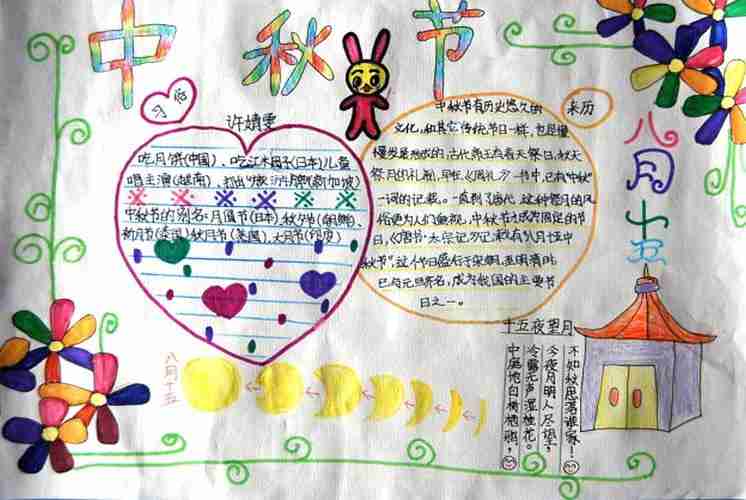 中秋节
习俗
许婧雯
吃月饼(中国)、吃江米团子(日本)儿童
唱主演(越南)、
中秋节的别名:月圆节(日本)秋夕节(朝鲜)、
新月节(泰国)秋月节(美国)、大月节(印度)
来历
中秋节有历史悠久的
文化,和其它传统节日一样,也是慢
慢发展形成的,古代帝王有春天祭日,秋天
祭月的礼制,早在《周礼》一书中,已有“中秋”
一词的记载。一直到了唐代,这种祭月的风
俗更为人们重视,中秋节才成为固定的节
日,《唐书·太宗记》记载有“八月十五中
秋节”,这个节日盛行于宋朝,至明清时
已与元旦齐名,成为我国的主要节
日之一。
八月十五
八月十五
十五夜望月
中庭地白树栖鸦,
冷露无声湿桂花。
今夜月明人尽望,
不知秋思落谁家!